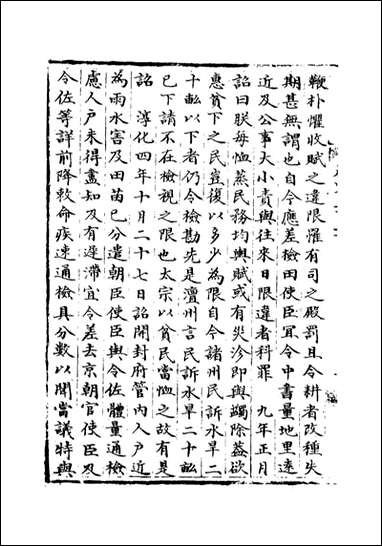 鞭朴懼收賦之違限罹有司之殿罰且令耕者改種失
期甚無謂也自今應差檢田使臣宜令中書量地里遠
近及公事大小責與往來日限違者科罪　九年正月
詔曰朕每恤蒸民務均輿賦或有災沴即與蠲除蓋欲
惠貧下之民豈復以多少為限自今諸州民訴水旱二
十畝以下者仍令檢勘先是澶州言民訴水旱二十畝
已下請不在檢視之限也太宗以貧民當恤之故有是
詔　淳化四年十月二十七日詔開封府管內人戶近
為雨水害及田苗已分遣朝臣使臣與令佐體量通檢
慮人戶未得盡知及有遲滯宜令差去京朝官使臣及
令佐等詳前降敕命疾速通檢具分數以聞當議特與